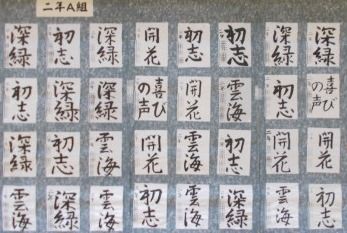 二年A組
深緑 初志 深緑 開花 初志 初志 深緑 深緑
初志 深緑 深緑 喜びの声 開花 雲海 開花 喜びの声
深緑 初志 雲海 開花 開花 雲海 開花 開花
雲海 深緑 雲海 初志 雲海 深緑 雲海 初志